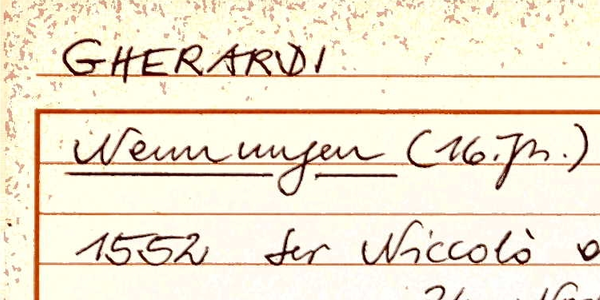 GHERARDI
Nennungen (16. Jh.)
1552 ser Niccolò